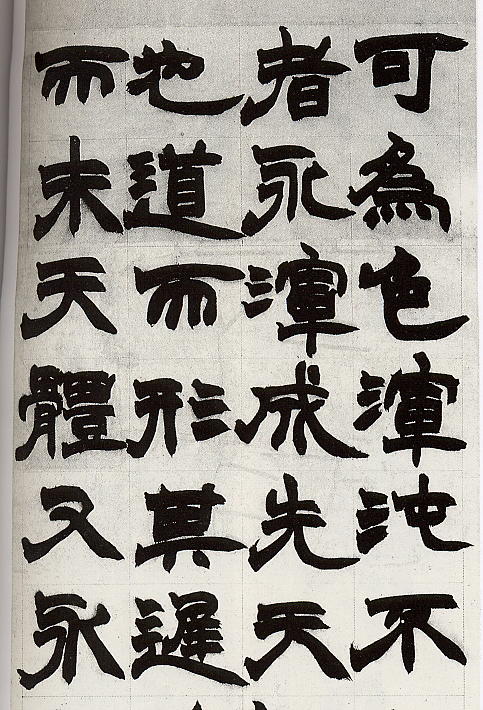 可為色渾沌不
者永渾成先天
也道而形其遲
而未天體又永